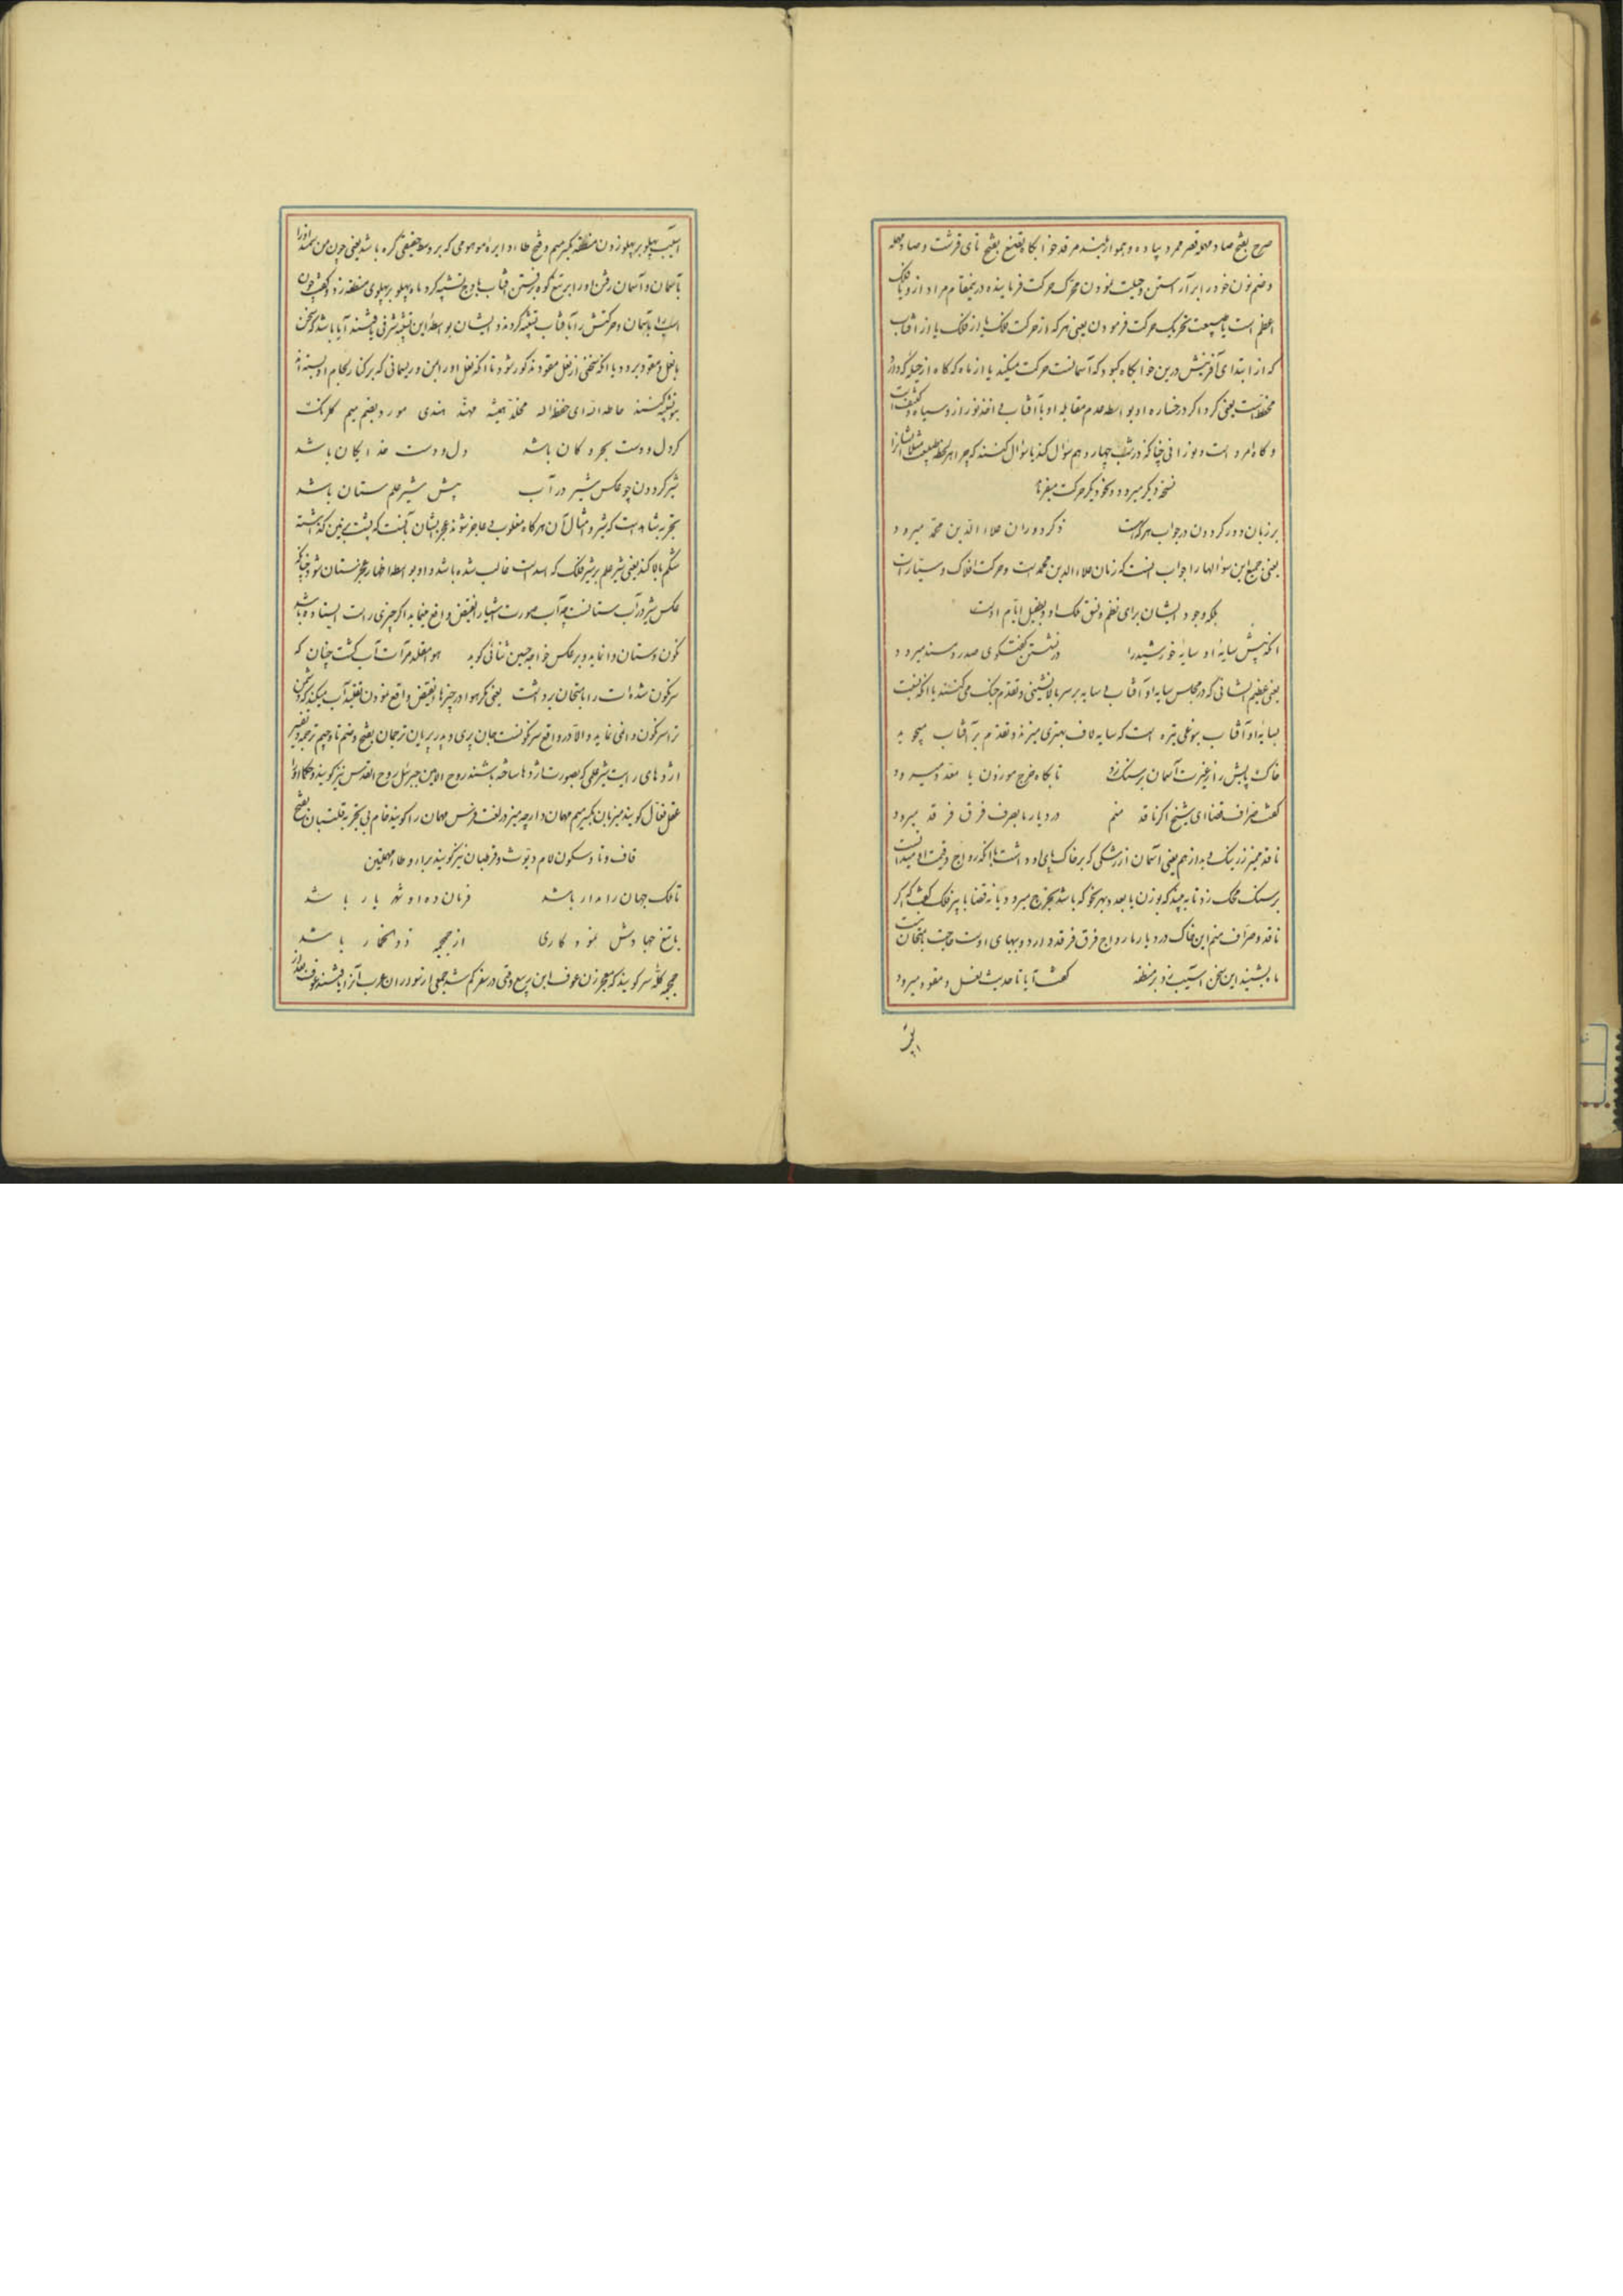 صرح بفتح صاد مهمله قصر ممرد پیاده و هموار بلند مرقد خوابگاه تصنع بفتح تای قرشت و صاد مهمله
و ضم نون خود را بر آراستن و حیلت نمودن محرک حرکت فرماینده درینمقام مراد ازو یا فلک
اعظم است یا طبیعت تحریک حرکت فرمودن یعنی هر که از حرکت فلک یا از فلک یا از آفتاب
که از ابتدای آفرینش درین خوابگاه کبود که آسمانست حرکت میکند یا از ماه که گاه از
یعنی گرد اگر رخساره او بواسطه عدم مقابله او با آفتاب بی اخذ نور ازو سیاه
و گاه امرد است و نورانی چنانکه در شب چهاردهم سؤال کند یا سؤال کنند که چرا هر لحظه
نسخه دیگر میرود و بنحو دیگر حرکت میفرماید
بر زبان دور گردون در جواب هر که هست
ز کر دوران علاء الدین محمد میرود
یعنی جمیع این سؤالها را جواب اینست که زمان علاء الدین محمد است و حرکت افلاک و سیارات
بلکه وجود ایشان برای نظم و نسق ملک او و بطفیل ایام اوست
آنکه پیش سایه او سایه خورشید را
در نشستن گفتگوی صدر و مسند میرود
یعنی عظیم الشانی که در مجلس سایه او آفتاب بی سایه بر سر بالانشینی و تقدم جنگ می کنند با آنکه نسبت
بسایه او آفتاب بنوعی تیره است که سایه لاف بهتری میزند و تقدم بر آفتاب میجوید
خاک پایش را ز غیرت آسمان بر سنگ زد
تا بگاه خرج موزون یا معدد میرود
گفت صراف قضا ای شیخ اگر ناقد منم
در دیار ما بصرف فرق فرقد میرود
ناقد ممیز زر نیک و بد از هم یعنی آسمان از رشکی که بر خاک پای او داشت با آنکه رواج و قیمت او میدانست
بر سنگ محک زد تا به بیند که بوزن یا بعدد و بهر نحو که باشد بخرج میرود یا نه قضا با پیر فلک گفت که اگر
ناقد و صراف منم این خاک در دیار ما رواج فرق فرقد دارد و بهای اوست حاجت بامتحان نیست
ماه بشنید این سخن آسیب زد بر منطقه
گفت آیا تا حدیث نعل و مقود میرود
آسیب پهلو بر پهلو زدن منطقه بکسر میم و فتح طاء دایره موهومی که بر وسط حقیقی کره باشد یعنی چون من سمند او را
بآسمان و آسمان رفتن او را بر تیغ کوه برفتن آفتاب باوج تشبیه کرد ماه پهلو بر پهلوی منطقه زد و گفت چون
اسپ را بآسمان و حرکتش را بآفتاب تشبیه کردند و ایشان بواسطه این تشبیه شرفی یافتند آیا باشد که سخن
بنعل و مقود برود یا آنکه سخنی از نعل و مقود مذکور شود تا آنکه نعل او را بمن و ریسمانی که بر کنار لجام او بسته اند
بتو تشبیه کنند حاطه الله ای حفظه الله مخلد همیشه مهند هندی مورد بضم میم گلرنگ
گر دل و دست بحر و کان باشد
دل و دست خدایگان باشد
شیر گردون چو عکس شیر در آب
پیش شیر علم ستان باشد
بتجربه مشاهد است که شیر و امثال آن هر گاه مغلوب و عاجز شوند عجز ایشان آنست که پشت بر زمین گذاشته
شکم بالا کند یعنی شیر علم بر شیر فلک که اسد است غالب شده باشد و او بواسطه اظهار عجز ستان شود چنانکه
عکس شیر در آب ستانست چه آب صورت اشیا را نقیض واقع مینماید اگر چیزی راست ایستاده باشد
نگون و ستان وا نماید و بر عکس خواجه حسین ثنائی گوید هوا مقلد مرآت آب گشت چنان که
سرنگون شده ذات را بامتحان برداشت یعنی مگر هوا در چیزها نقیض واقع نمودن تقلید آب میکند که دشمن
ترا سرنگون وا می نماید و الا در واقع سرنگونست جان پری و پدر پریان ترجمان بفتح و ضم تا و جیم ترجمه و تفسیر
اژدهای رایت شیر علمی که بصورت اژدها ساخته باشند روح الامین جبرئیل روح القدس نیز گویند و حکما او را
عقل فعال گویند میزبان بکسر میم مهمان دار چه میز در لغت فرس مهمان را گویند خام بی تجربه قلتبان بفتح
قاف و تا و سکون لام دیوث و قرطبان نیز گویند براء و طاء مهملتین
تا فلک جهان را مدار باشد
فرمان ده او شهریار باشد
با تیغ جهادش نمود کاری
از حججه ذوالخمار باشد